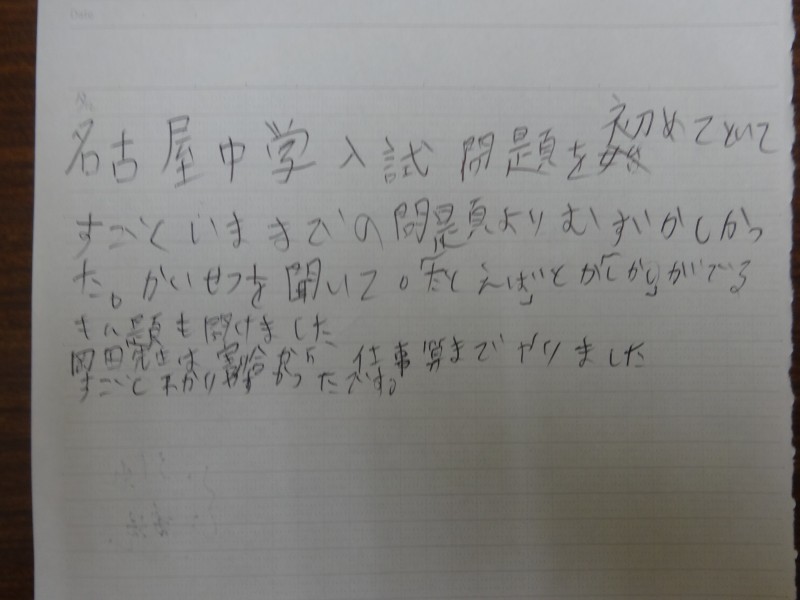 Date
名古屋中学入試問題を初めてといて
すごくいままでの問題よりむずいかしかっ
た。かいせつを聞いて。「たとえば」とか「から」がでる
もん題も解けました
岡田先生は割合から仕事算までやりました
すごくわかりやすかったです。